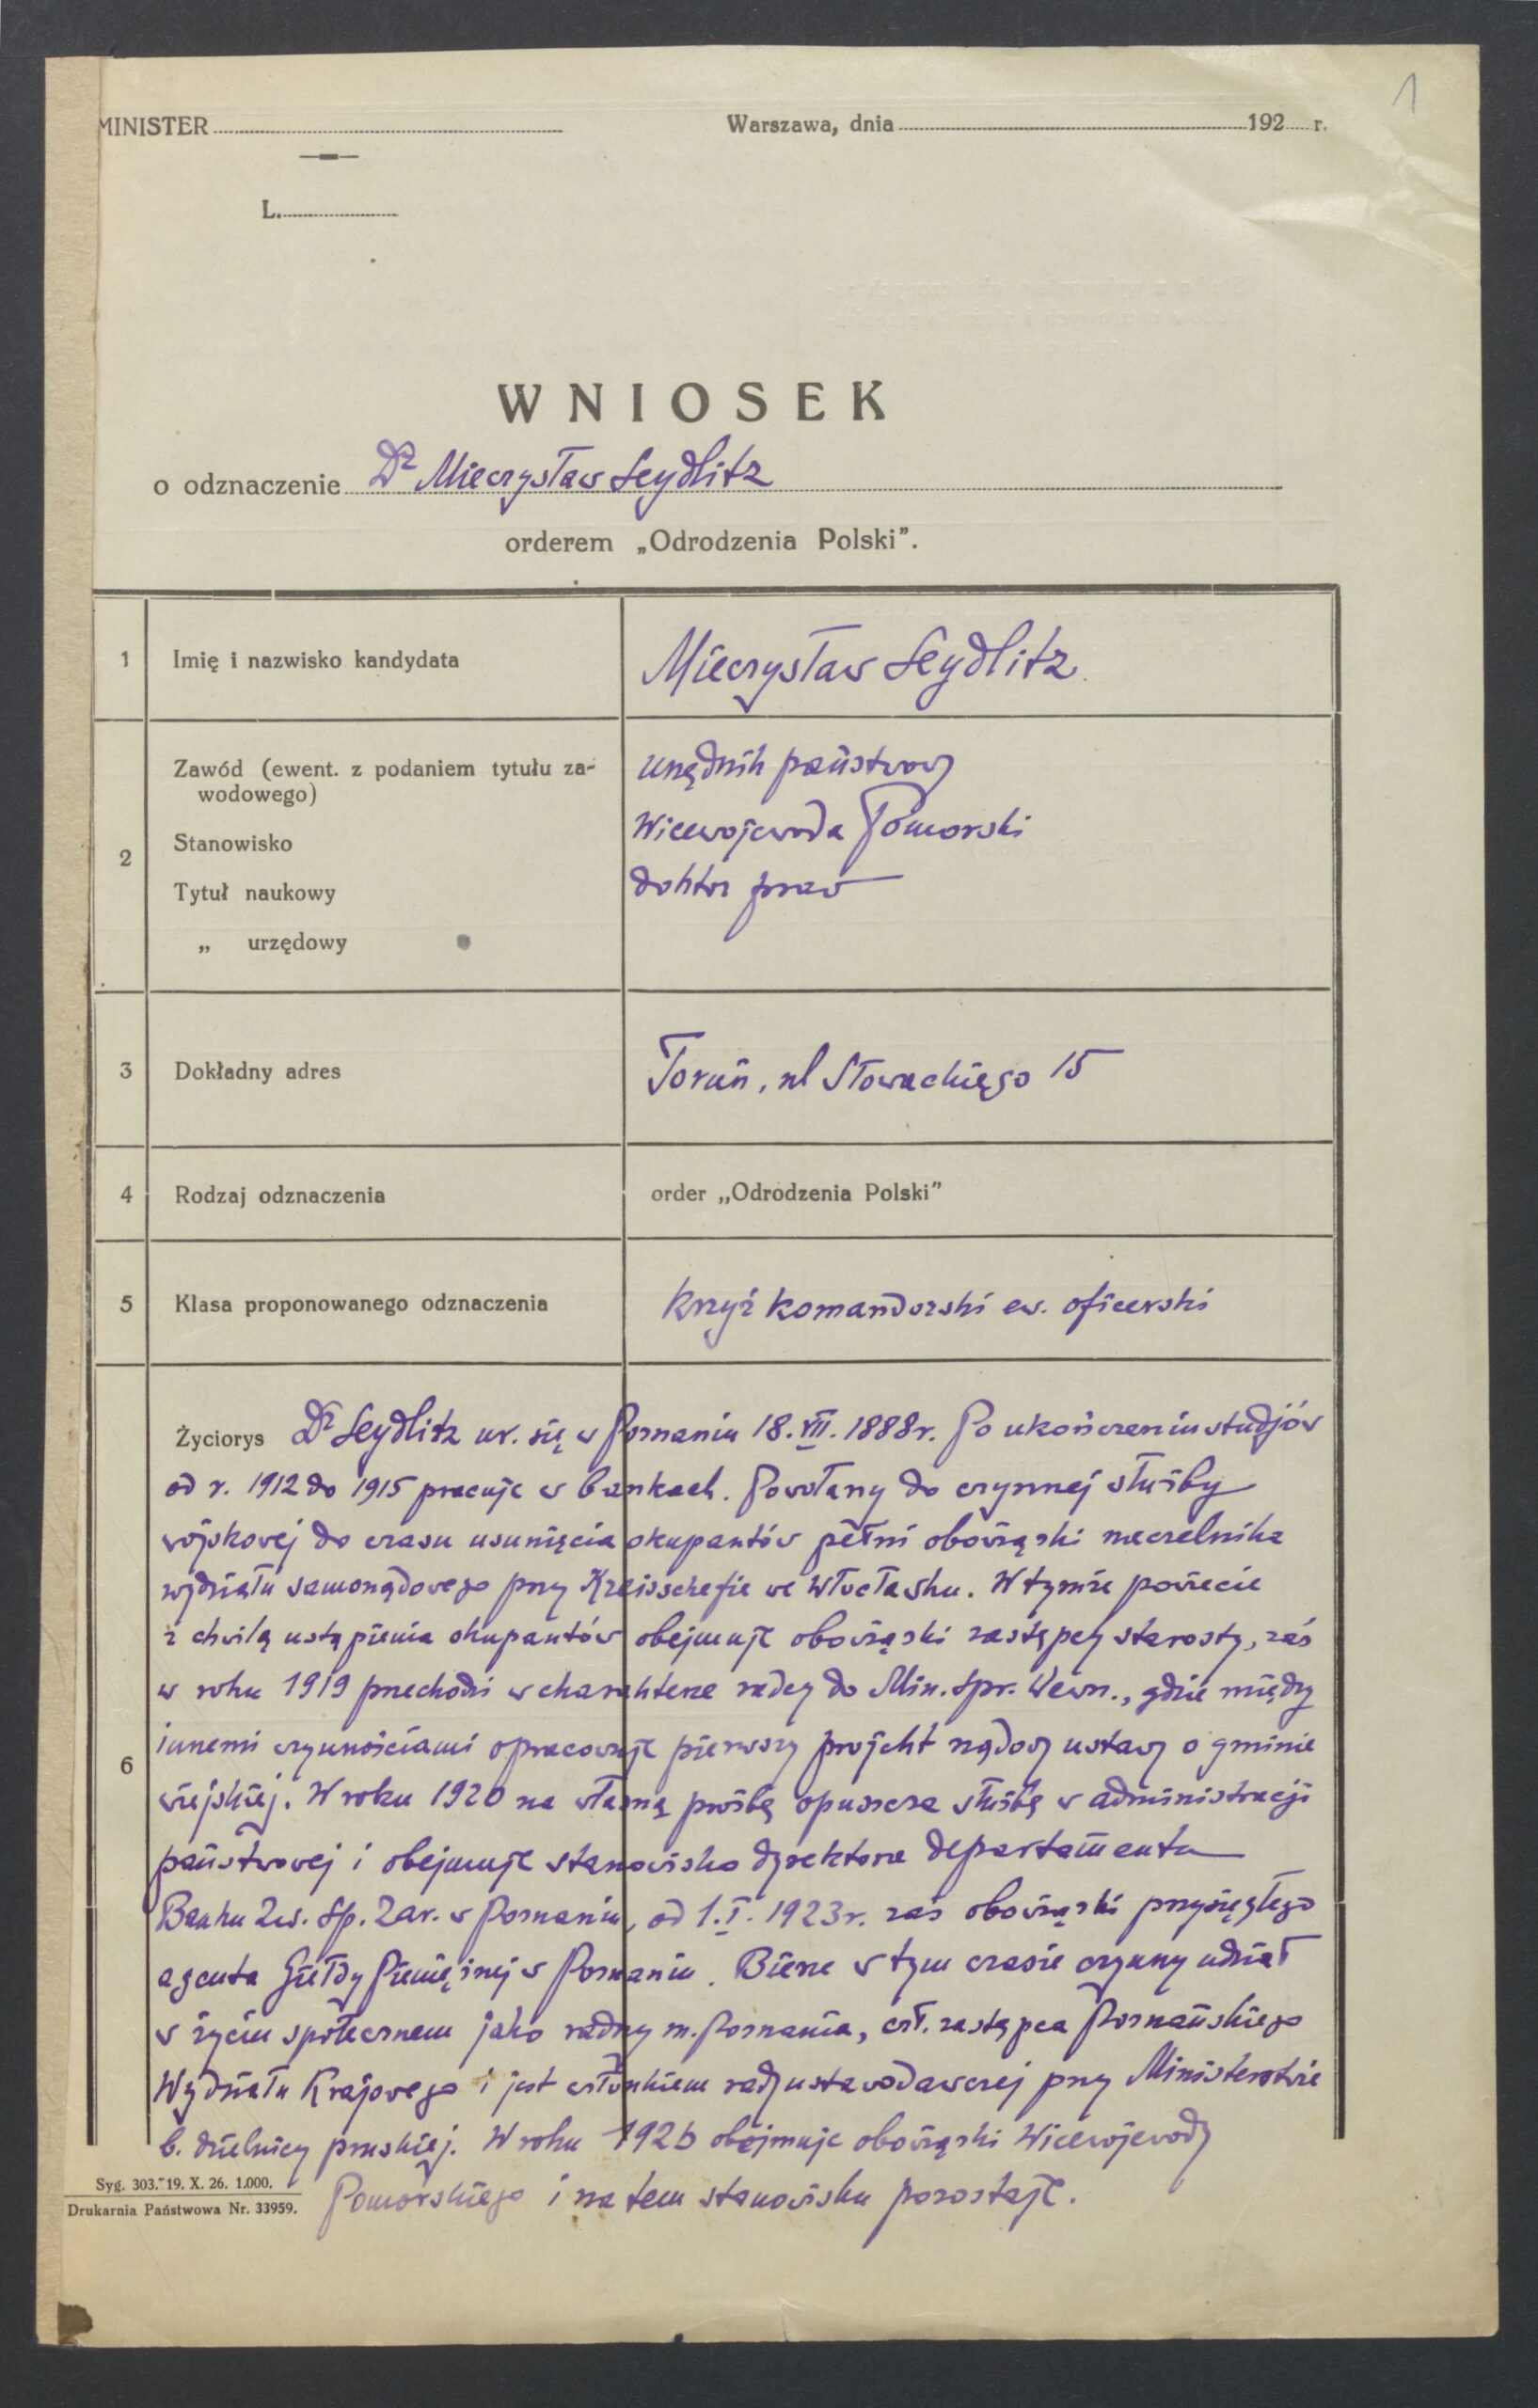 1
MINISTER
Warszawa, dnia 192 r.
L.
WNIOSEK
o odznaczenie Dr Mieczysław Seydlitz
orderem „Odrodzenia Polski".
1 Imię i nazwisko kandydata Mieczysław Seydlitz
2
Zawód (ewent. z podaniem tytułu za-
wodowego) urzędnik państwowy
Stanowisko Wicewojewoda Pomorski
Tytuł naukowy doktor praw
„ urzędowy
3 Dokładny adres Toruń, ul Słowackiego 15
4 Rodzaj odznaczenia order „Odrodzenia Polski"
5 Klasa proponowanego odznaczenia Krzyż Komandorski ew. oficerski
6
Życiorys Dr Seydlitz ur. się w Poznaniu 18.VII.1888r. Po ukończeniu studjów
od r. 1912 do 1915 pracuje w bankach. Powołany do czynnej służby
wojskowej do czasu usunięcia okupantów pełni obowiązki naczelnika
wydziału samorządowego przy Kreisschefie we Włocławku. W tymże powiecie
z chwilą ustąpienia okupantów obejmuje obowiązki zastępcy starosty, zaś
w roku 1919 przechodzi w charakterze radcy do Min. Spr. Wewn., gdzie między
innemi czynnościami opracowuje pierwszy projekt rządowy ustawy o gminie
wiejskiej. W roku 1920 na własną prośbę opuszcza służbę w administracji
państwowej i obejmuje stanowisko dyrektora departamentu
Banku Zw. Sp. Zar. w Poznaniu, od 1.I.1923r. zaś obowiązki przysięgłego
agenta Giełdy Pieniężnej w Poznaniu. Bierze w tym czasie czynny udział
w życiu społecznem jako radny m. Poznania, czł. zastępca Poznańskiego
Wydziału Krajowego i jest członkiem rady ustawodawczej przy Ministerstwie
b. dzielnicy pruskiej. W roku 1926 obejmuje obowiązki Wicewojewody
Pomorskiego i na tem stanowisku pozostaje.
Syg. 303. 19. X. 26. 1.000.
Drukarnia Państwowa Nr. 33959.